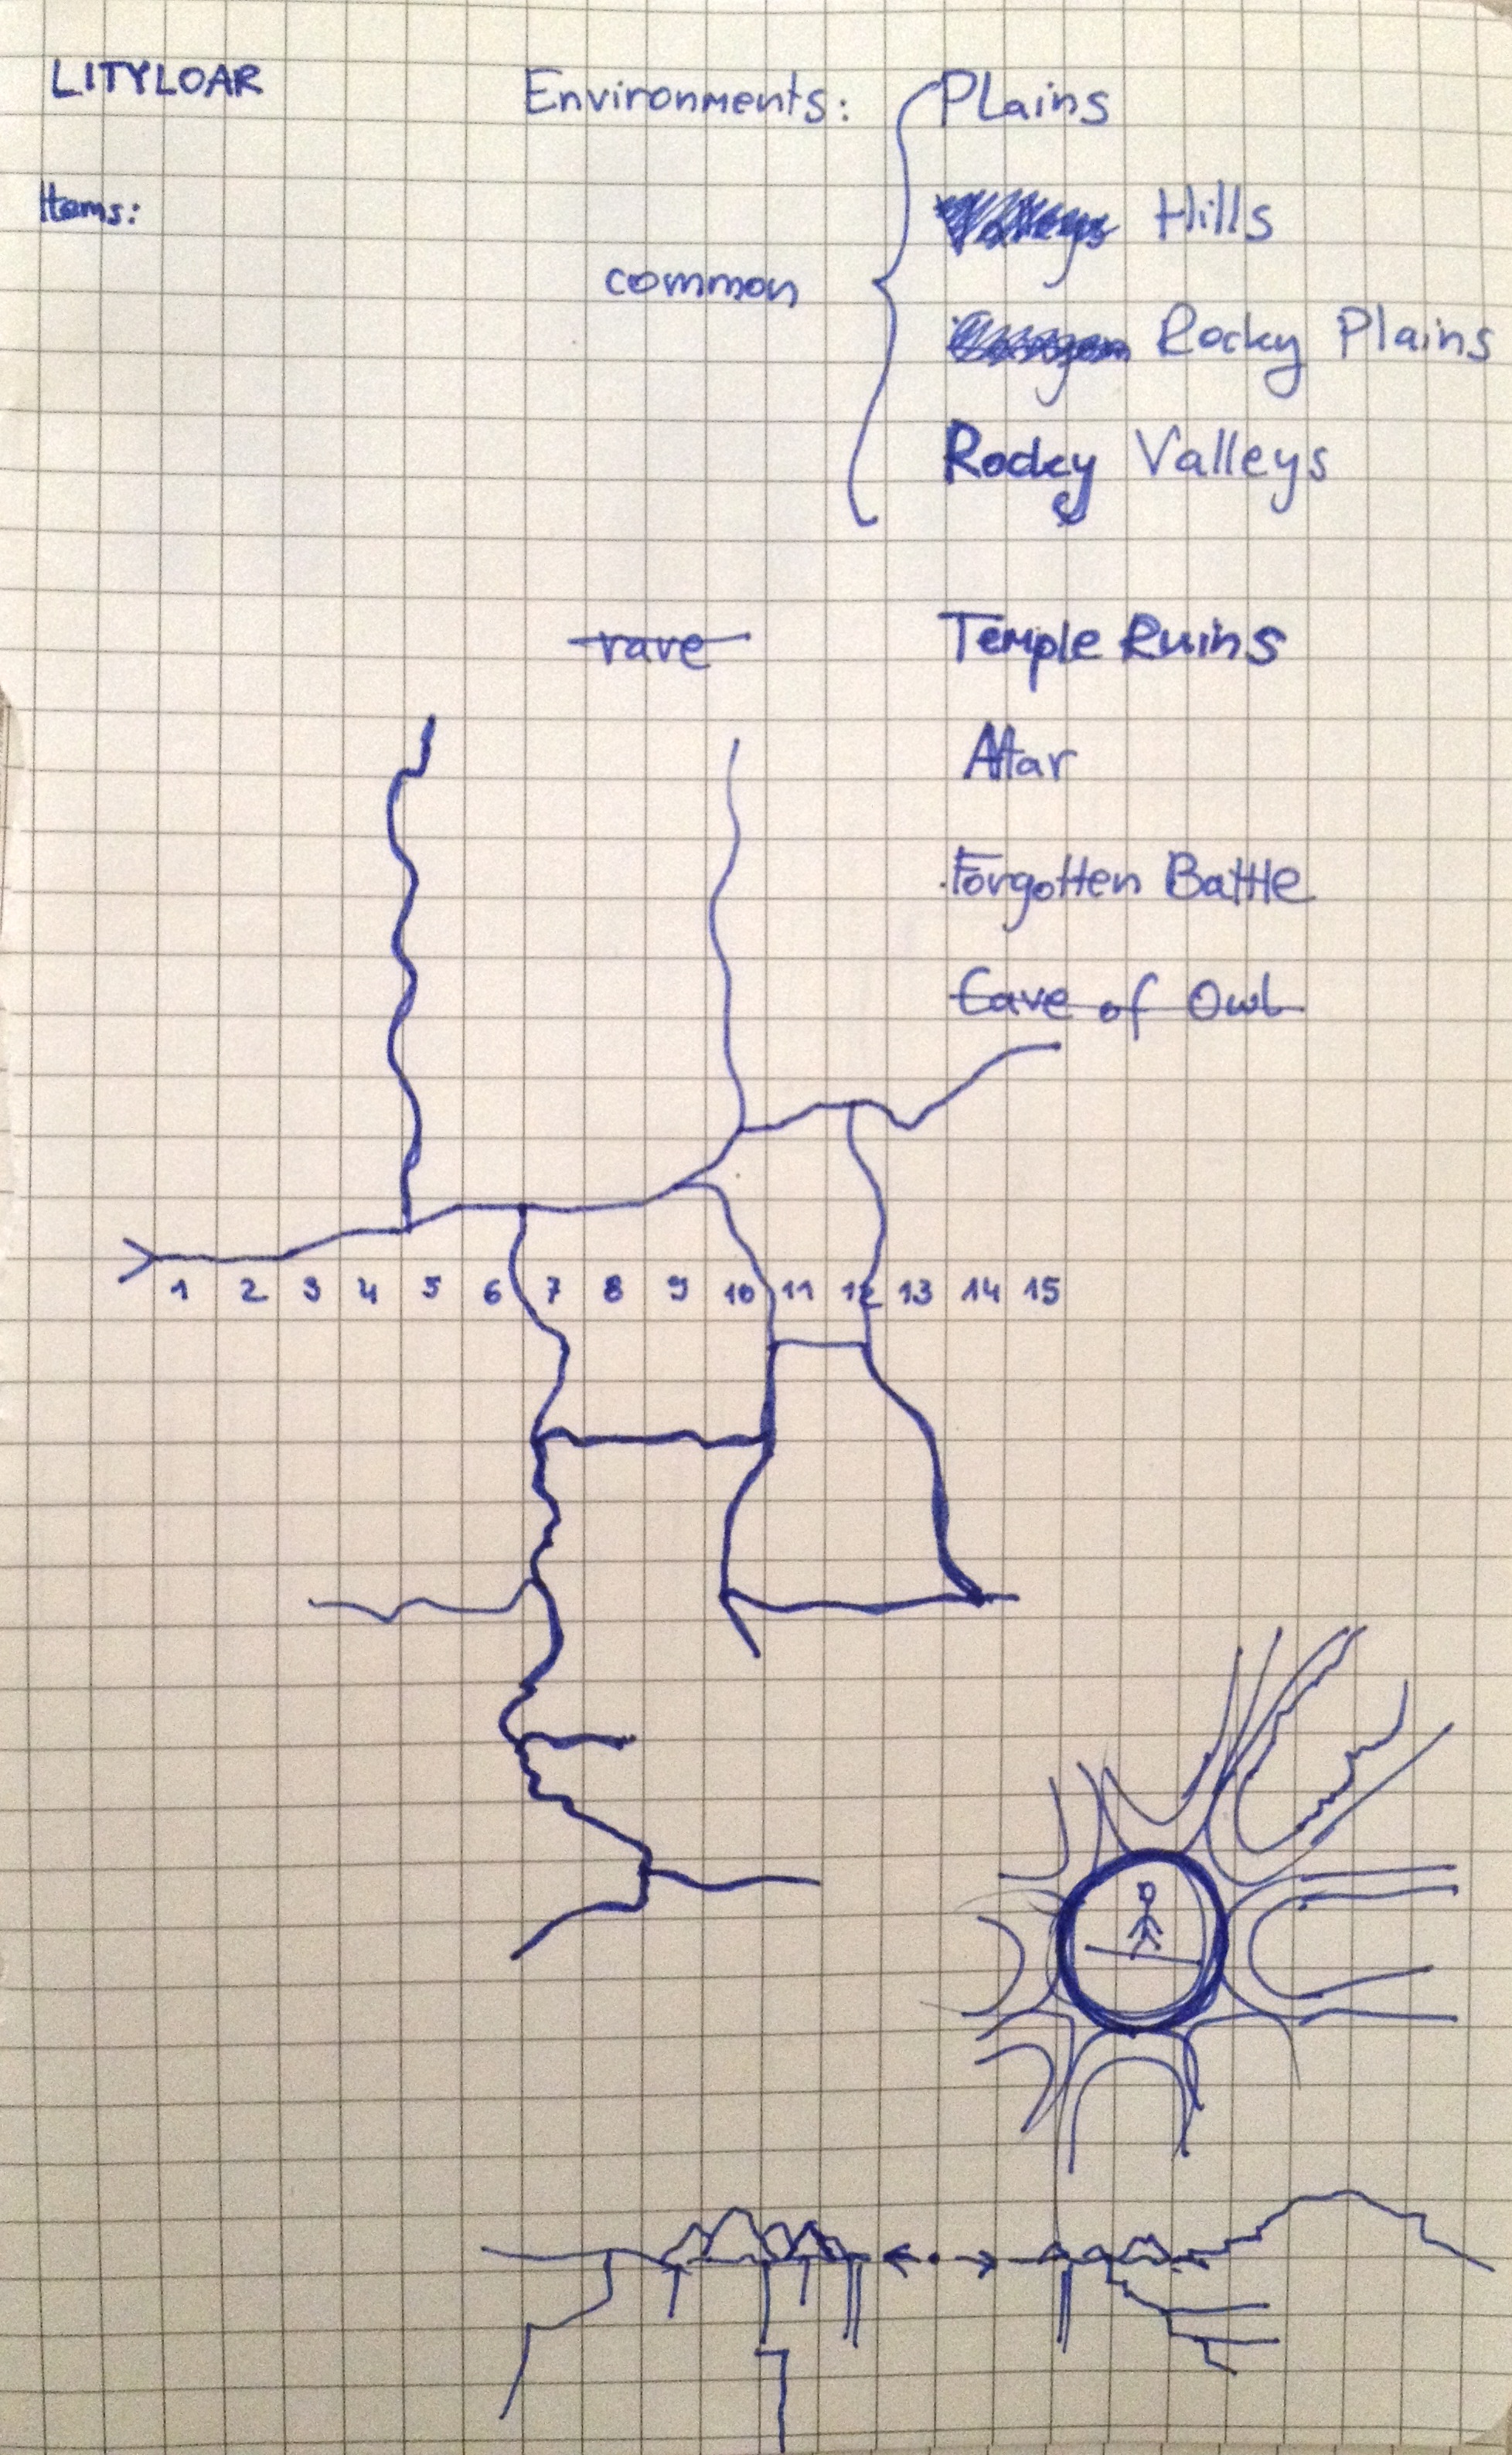 LITYLOAR
Environments: Plains
Items:
Hills
common
Rocky Plains
Rocky Valleys
rare Temple Ruins
Altar
Forgotten Battle
Cave of Owl
1 2 3 4 5 6 7 8 9 10 11 12 13 14 15